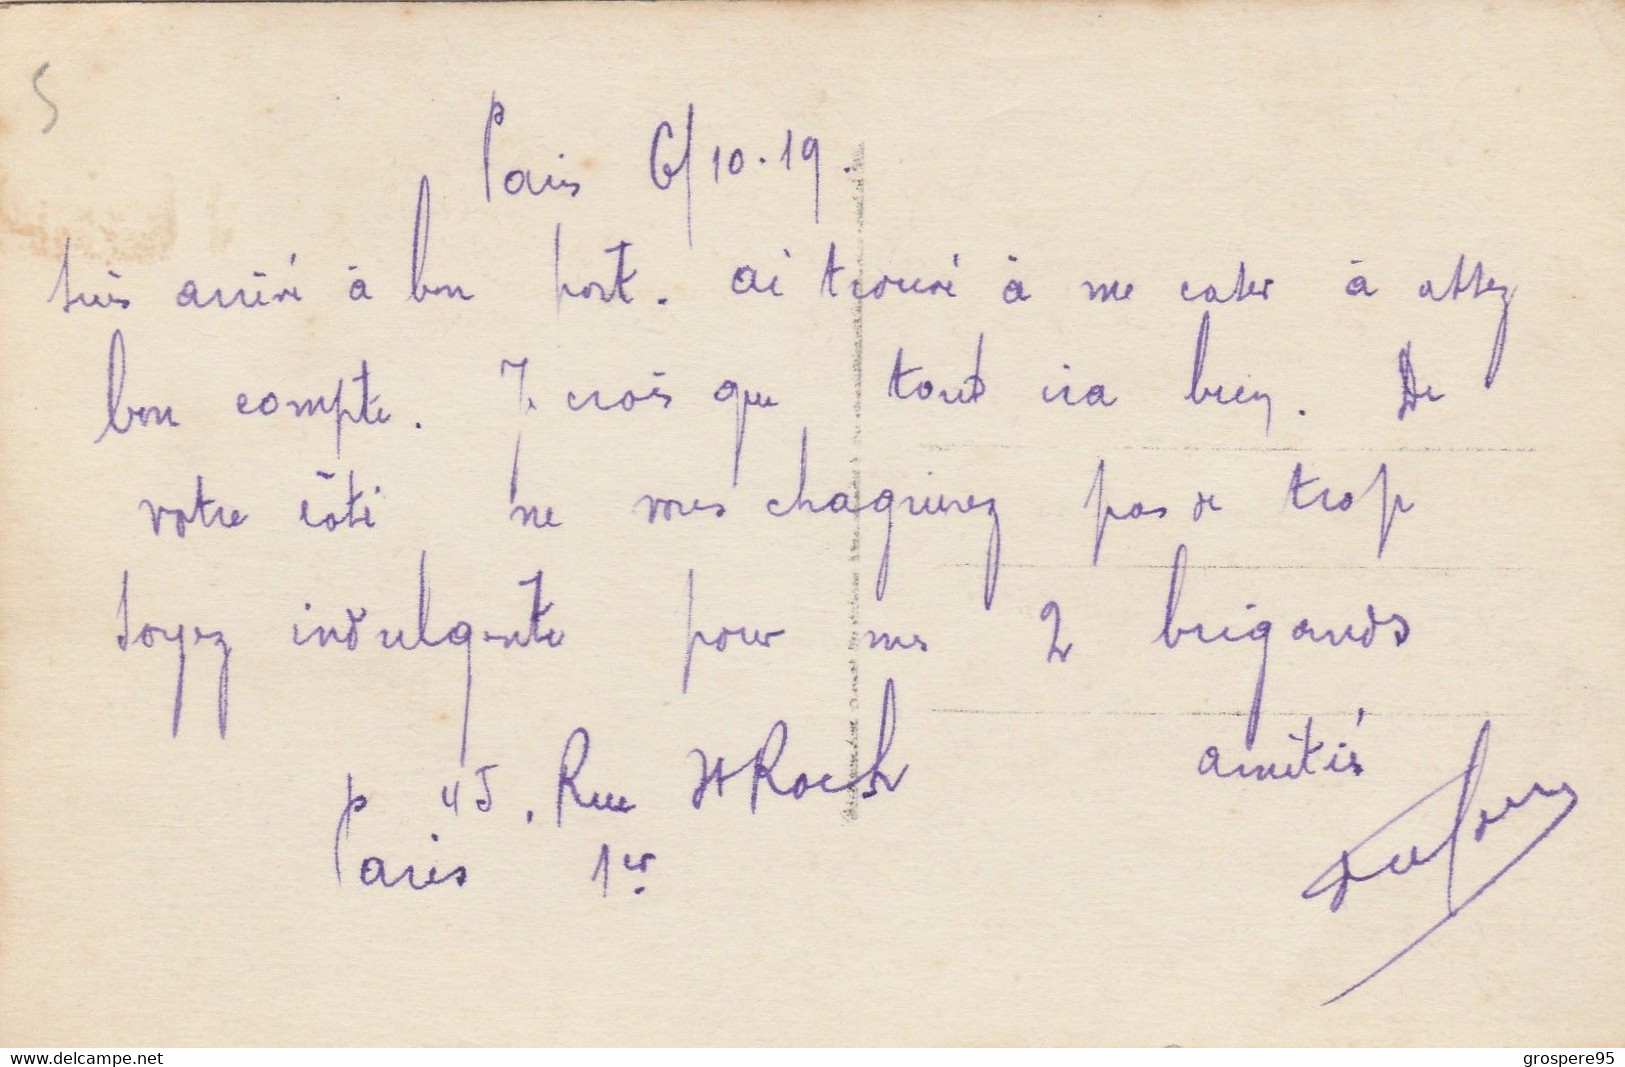 5
Paris 6/10.19.
Suis arrivé à bon port. ai trouvé à me caser à assez
bon compte. Je crois que tout ira bien. De
votre côté ne vous chagrinez pas de trop
soyez indulgente pour mes 2 brigands
amitiés
p 45, Rue St Roch
Paris 1er
www.delcampe.net
grospere95